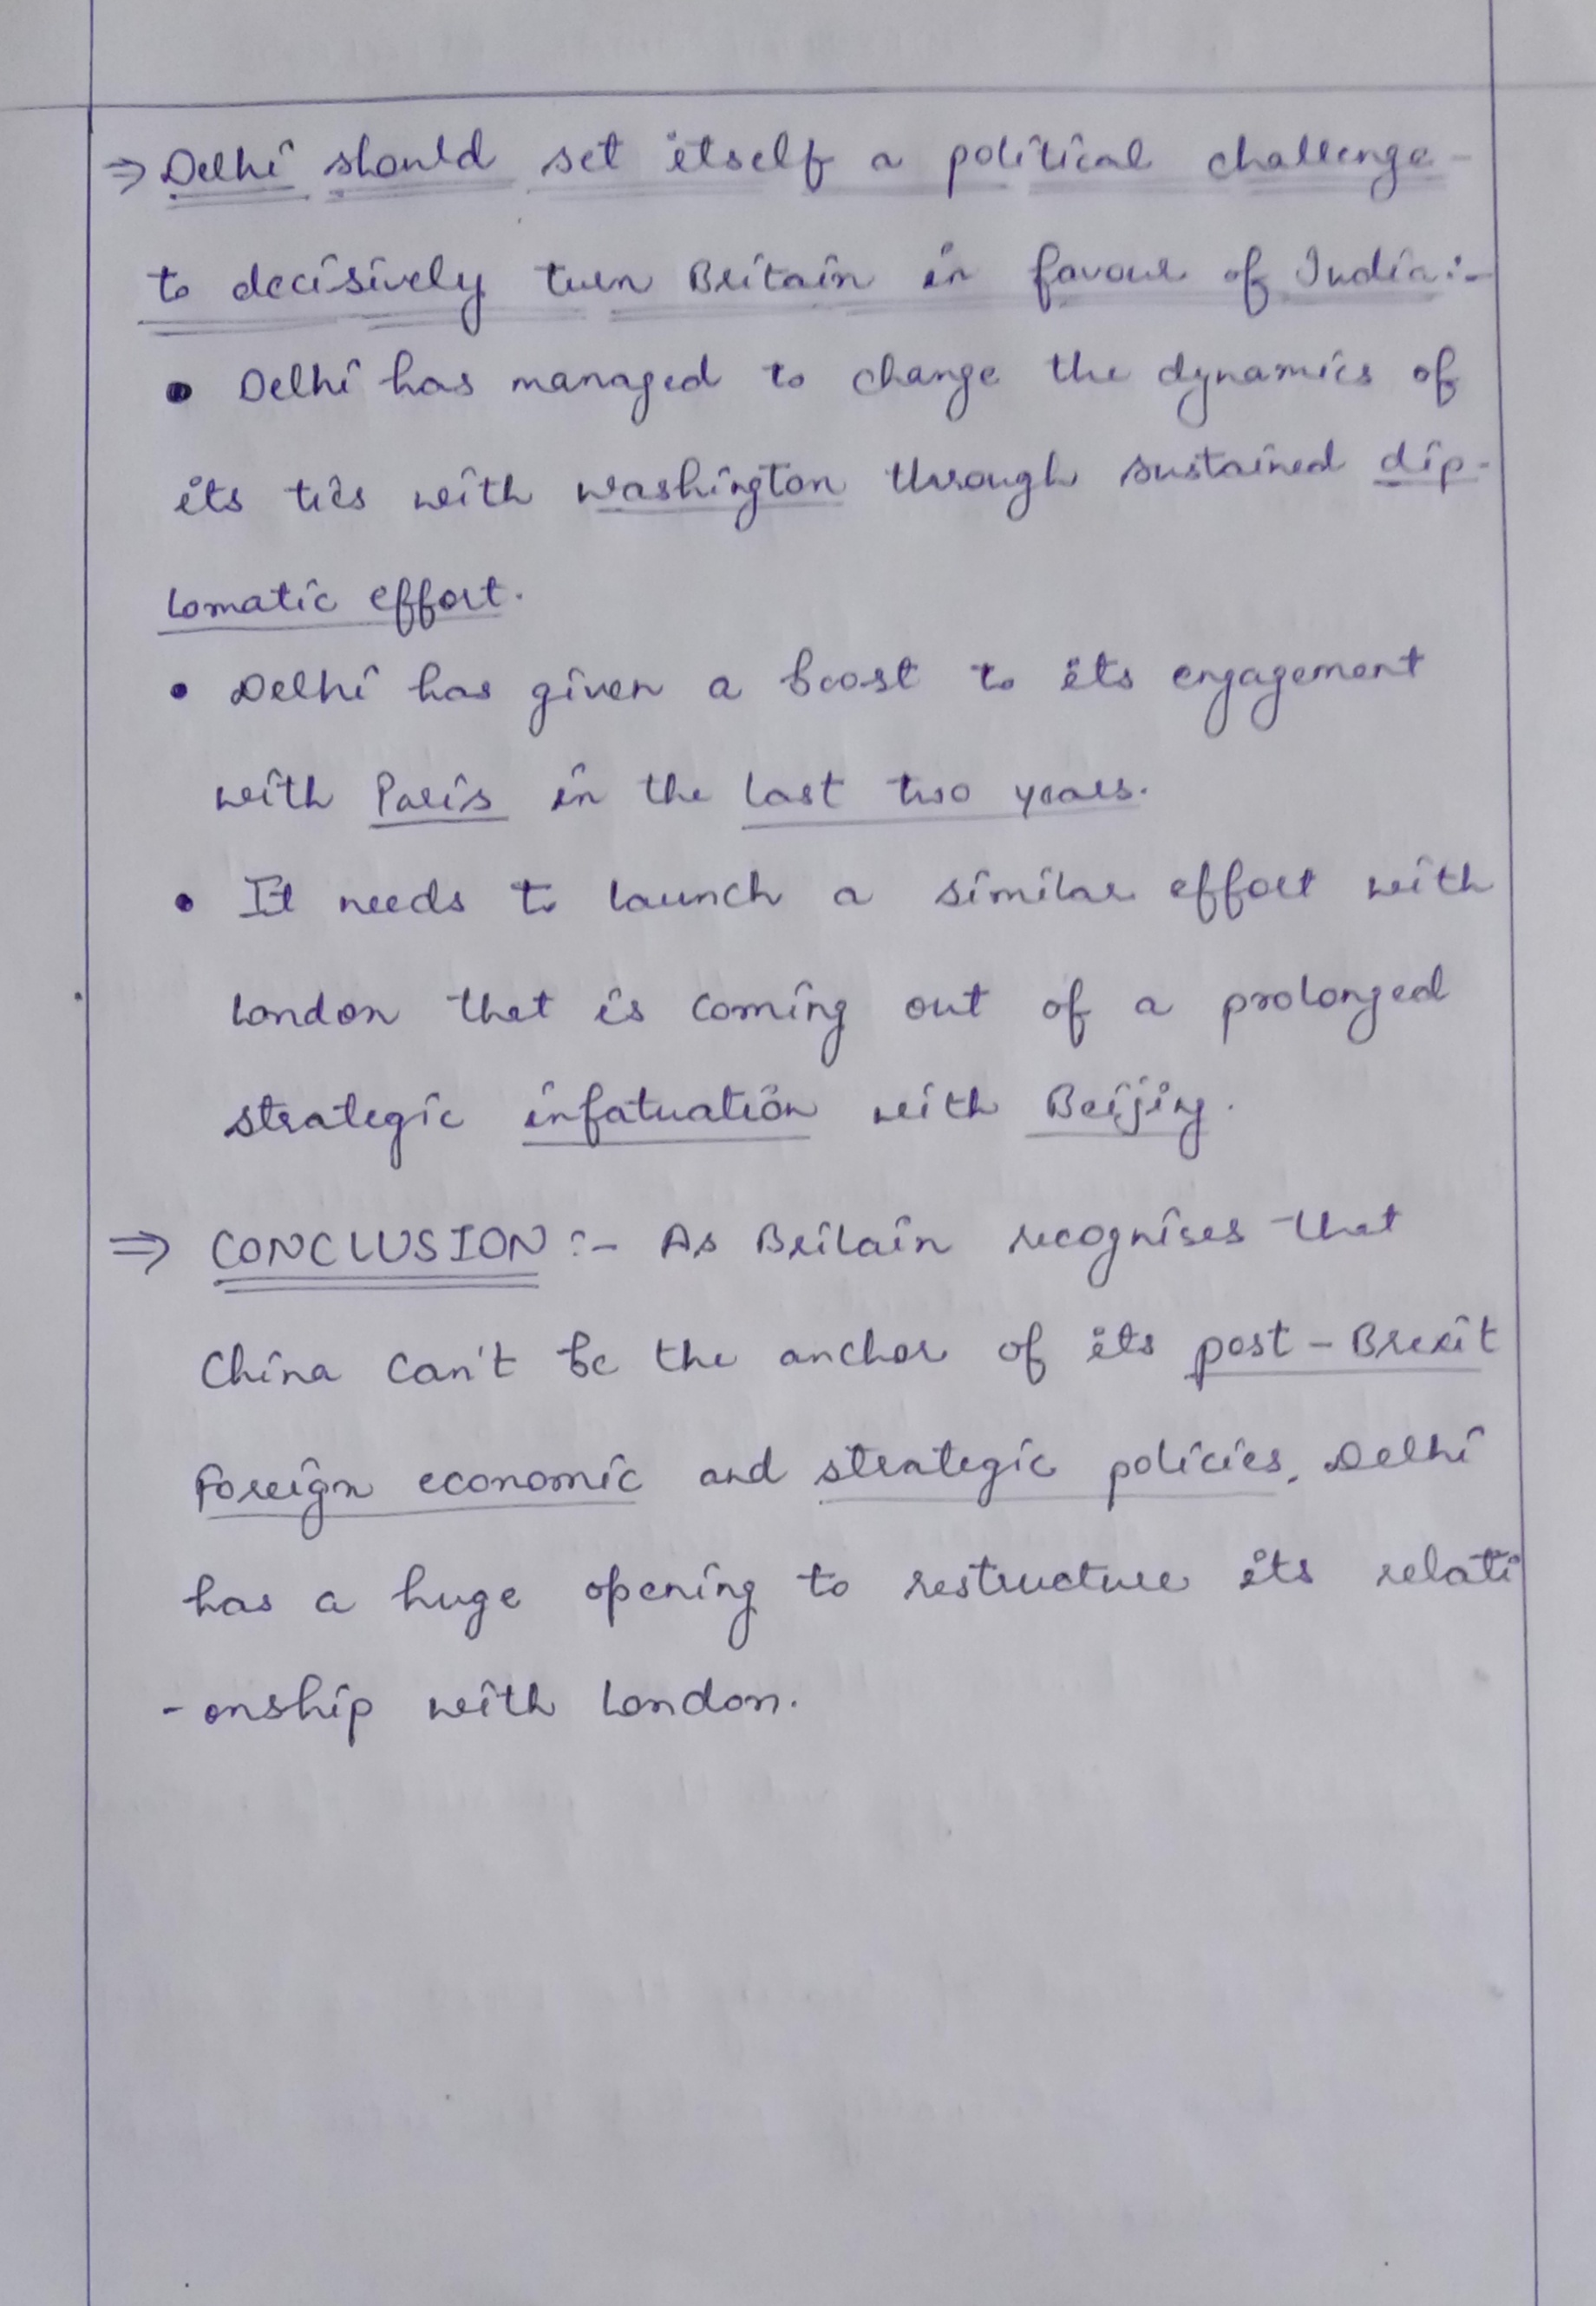 ⇒ Delhi should set itself a political challenge -
to decisively turn Britain in favour of India :-
• Delhi has managed to change the dynamics of
its ties with Washington through sustained dip-
lomatic effort.
• Delhi has given a boost to its engagement
with Paris in the last two years.
• It needs to launch a similar effort with
London that is coming out of a prolonged
strategic infatuation with Beijing.
⇒ CONCLUSION :- As Britain recognises that
China can't be the anchor of its post-Brexit
Foreign economic and strategic policies, Delhi
has a huge opening to restructure its relati
-onship with London.